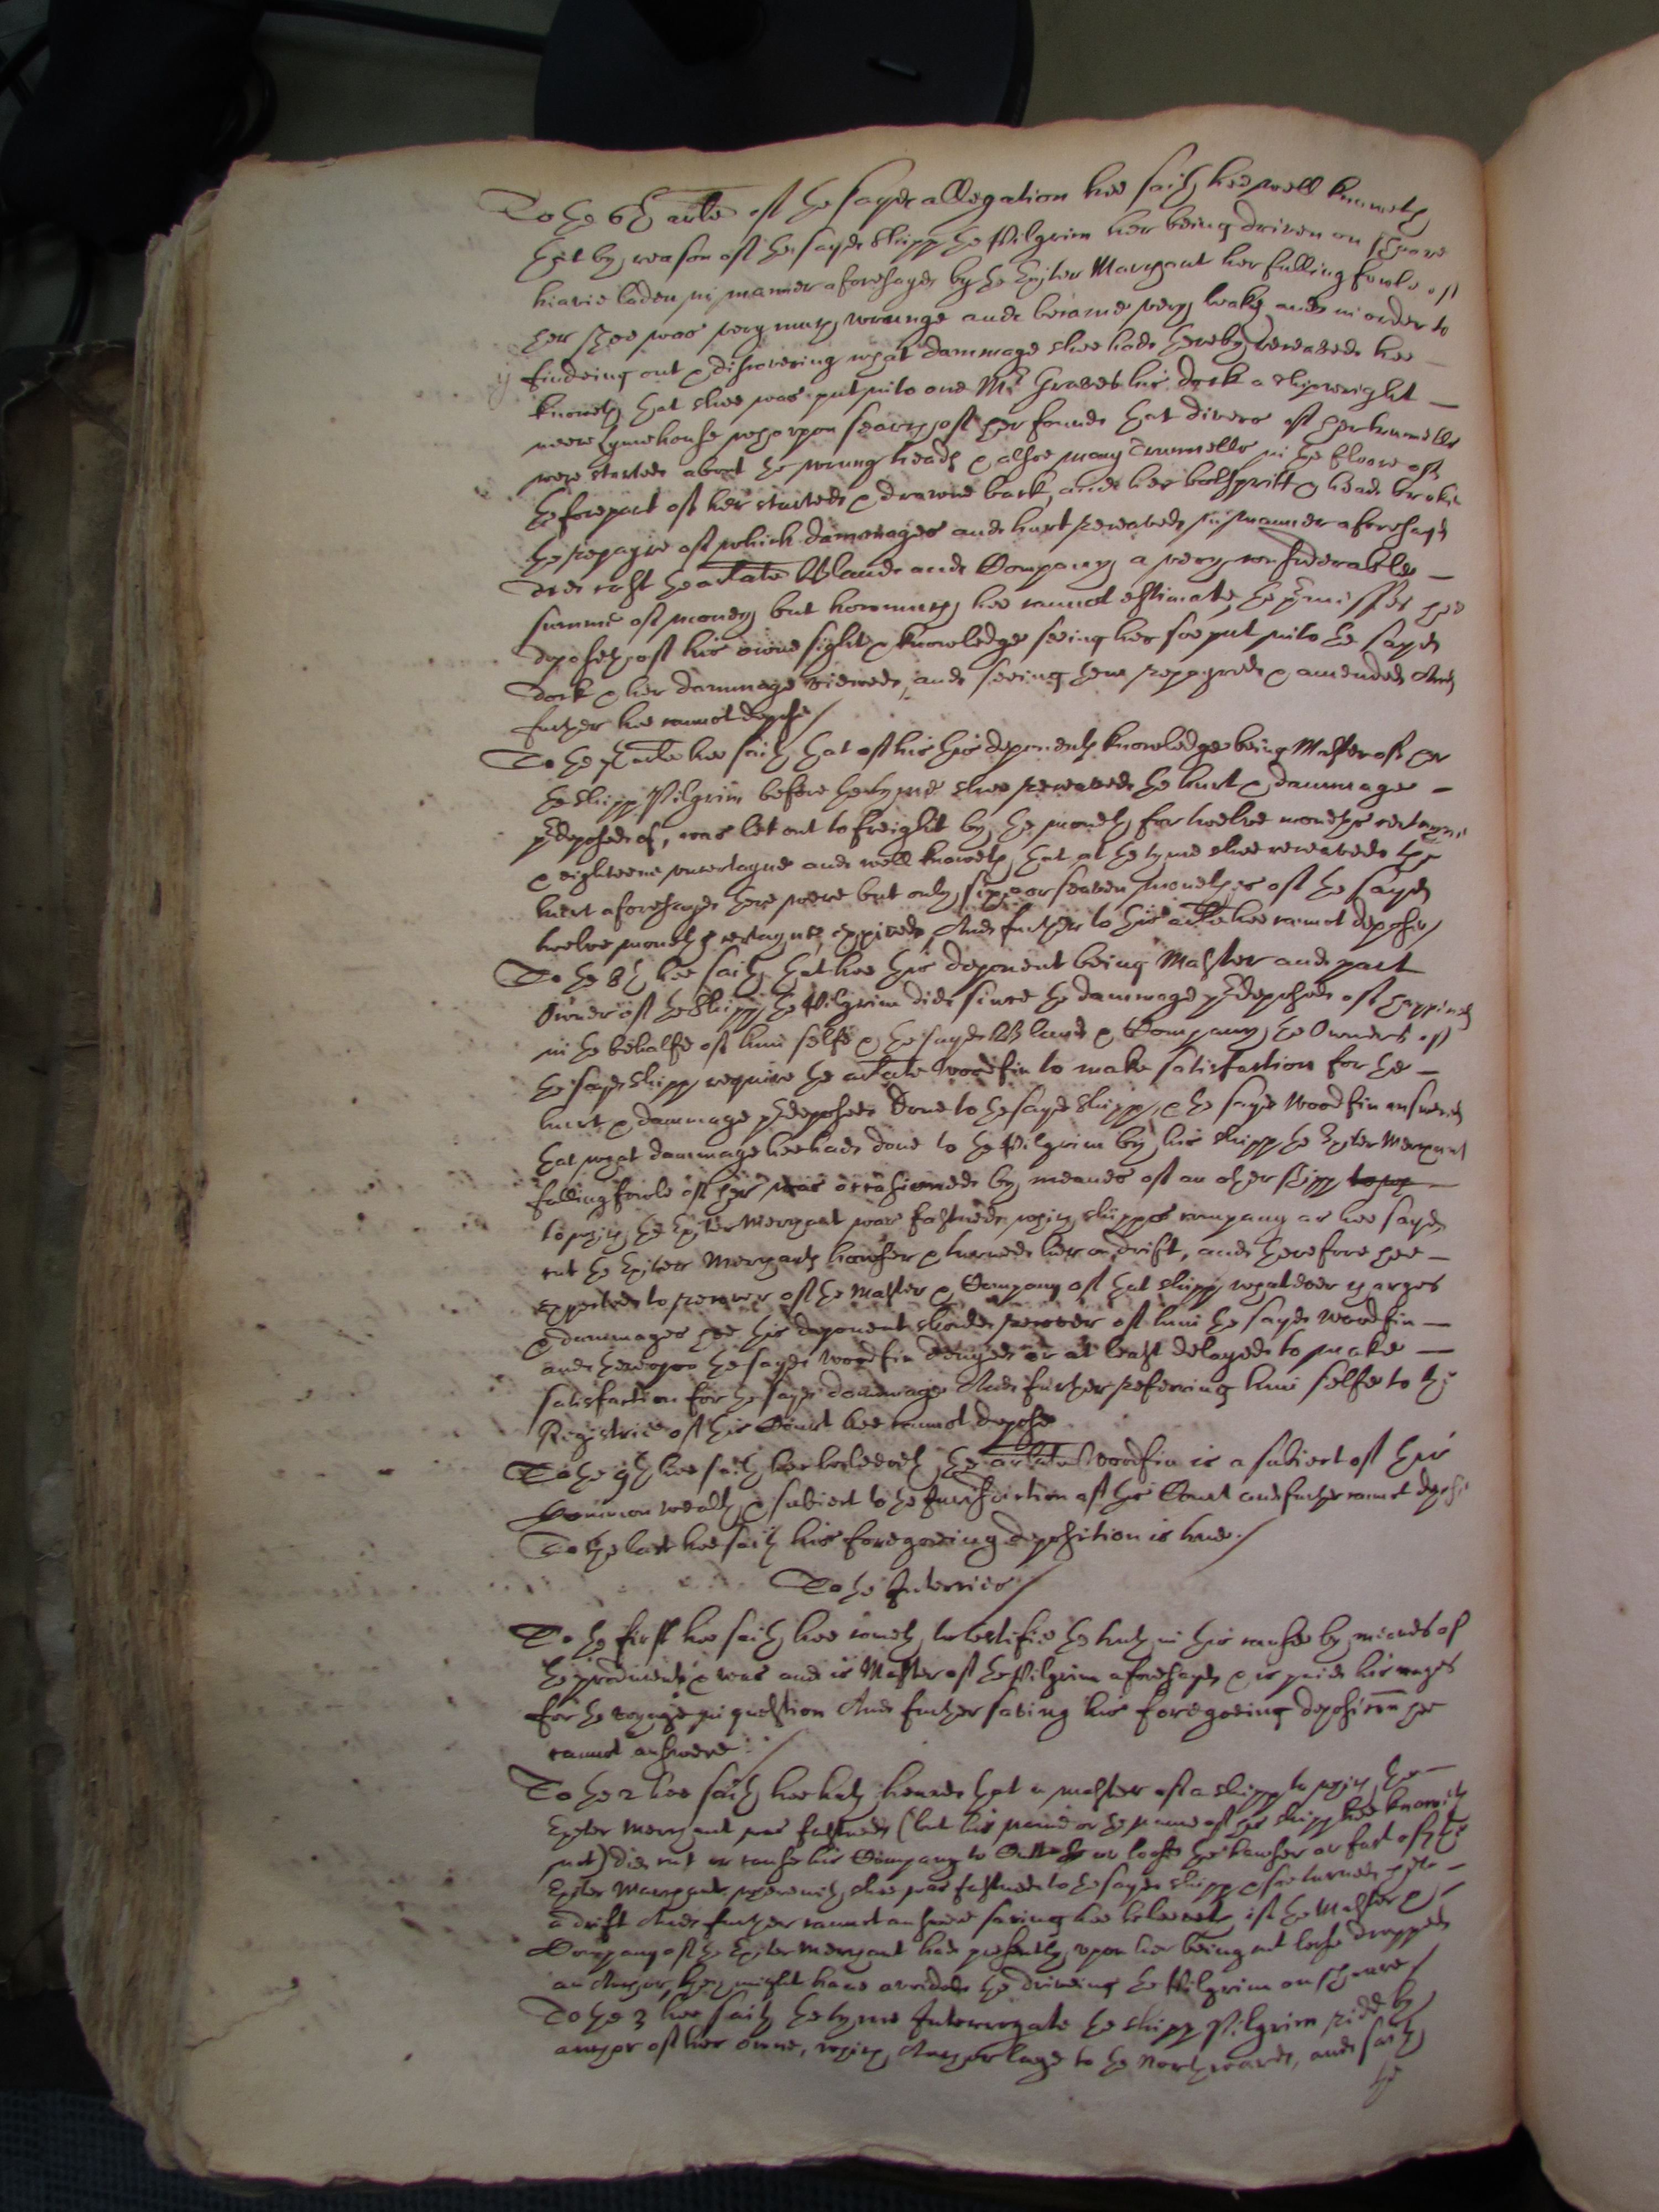 To the 6th arlte of the sayd allegation hee saith hee well knoweth
that by reason of the sayd shipp the Pilgrim her being driven on shoare
heavie laden in manner aforesayd by the Exster Marchant her falling fowle of
her shee was very much wrunge and became very leaky and in order to
findeing out & discovering what dammage shee had thereby receaved hee
knoweth that shee was put into one Mr Graves his dock a shipwright
neere Lymehouse who uppon search of her found that divers of her trunnells
were started about the wrung heads & alsoe many trunnells in the floore of
the forepart of her started & drawne back, and her boltspritt & head broken
the repayre of which dammages and hurt receaved in manner aforesayd
did cost the arlate Bland and Company a very considerable
summe of money but howmuch hee cannot estimate, the premisses hee
deposeth of his owne sight & knowledge seeing her soe put into the sayd
dock & her dammage viewed, and seeing them repayred & amended And
further hee cannot depose /
To the 7th arlte hee saith that of his this deponents knowledge being Master of her
the shipp Pilgrim before the tyme shee receaved the hurt & dammage
predeposed of, was let out to freight by the moneth for twelve moneths certayne
& eighteene uncertayne and well knoweth that at the tyme shee receaved the
hurt aforesayd there were but only six or seaven moneths of the sayd
twelve moneths certayne expired, And further to this arlte hee cannot depose /
To the 8th hee saith that hee this deponent being Master and part
Owner of the shipp the Pilgrim did since the dammage predeposed of happined
in the behalfe of him selfe & the sayd Bland & Company the Owners of
the sayd shipp require the arlate Woodfin to make satisfaction for the
hurt & dammage predeposed done to the sayd shipp, & the sayd Woodfin answered
that what dammage hee had done to the Pilgrim by his shipp the Exster Merchant
falling fowle of her was occasioned by meanes of an other shipp to wch
to which the Exster Merchant was fastned, which shipps company as hee sayd
cut the Exster Merchants hawser & turned her on drift, and therefore hee
expected to recover of the Master & Company of that shipp whatever charges
& dammages hee this deponent should recover of him the sayd Woodfin
and thereupon the sayd Woodfin denyed or at least delayed to make
satisfaction for the sayd dammage And further referring him selfe to the
Registrie of this Court hee cannot depose
To the 9th hee saith hee beleeveth the arlate Woodfin is a subiect of this
Common wealth & subiect to the Jurisdiction of this Court and further cannot depose
To the last hee saith his foregoeing deposition is true /
To the Interries /
To the first hee saith hee cometh to testifie the truth in this cause by meanes of
the producent & was and is Master of the Pilgrim aforesayd & is paid his wages
for the voyage in question And further saving his foregoeing deposicon hee
cannot answere /
To the 2 hee saith hee hath heard that a master of a shipp to which the
Exster Merchant was fastned (but his name or the name of his shipp hee knoweth
not) did cut or cause his Company to Cutt or loose the hawser or fast of the
Exster Marchant wherewith shee was fastned to the sayd shipp & soe turned her
adrift And further cannot answere saving hee beleeveth if the Master &
Company of the Exster Merchant had presently upon her being cut loose dropped
an Anchor, they might have avoided the driving the Pilgrim on shoare /
To the 3 hee saith the tyme Interrogate the shipp Pilgrim ridd by
anchor of her owne, which Anchor laye to the Northward, and saith
the